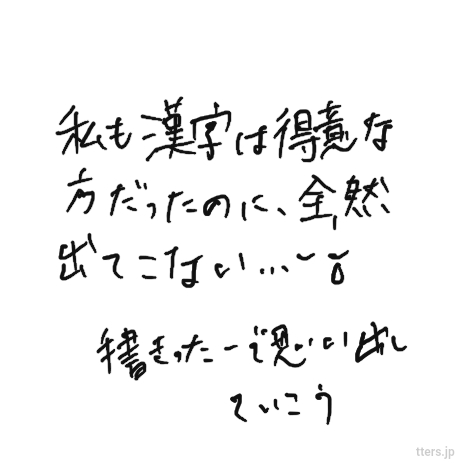 私も漢字は得意な
方だったのに、全然
出てこない…
手書きったーで思い出し
ていこう
tters.jp